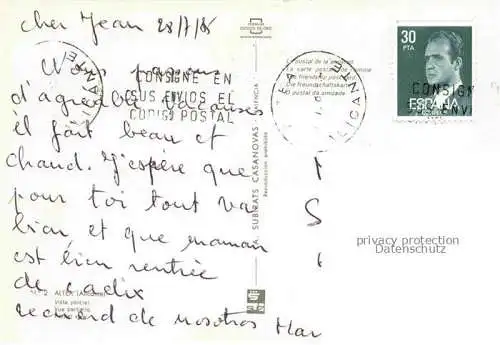 cher Jean 28/7/85
d'agreables vacances
il fait beau et
chaud. J'espère que
pour toi tout va
bien et que maman
est bien rentrée
de cadix
recuerd de nosotros Mar
CONSIGNE EN
SUS ENVIOS EL
CODIGO POSTAL
ALICANTE
ALICANTE
La postal de la amistad
La carte postale de l'amitié
The friendship postcard
Die Freundschaftskarte
El postal da amizade
30
PTA
ESPAÑA
CONSIGN
ENV
SUBIRATS CASANOVAS
VALENCIA
Reproducción prohibida
ALTEA (Alicante)
Vista parcial
Vue partielle
privacy protection
Datenschutz